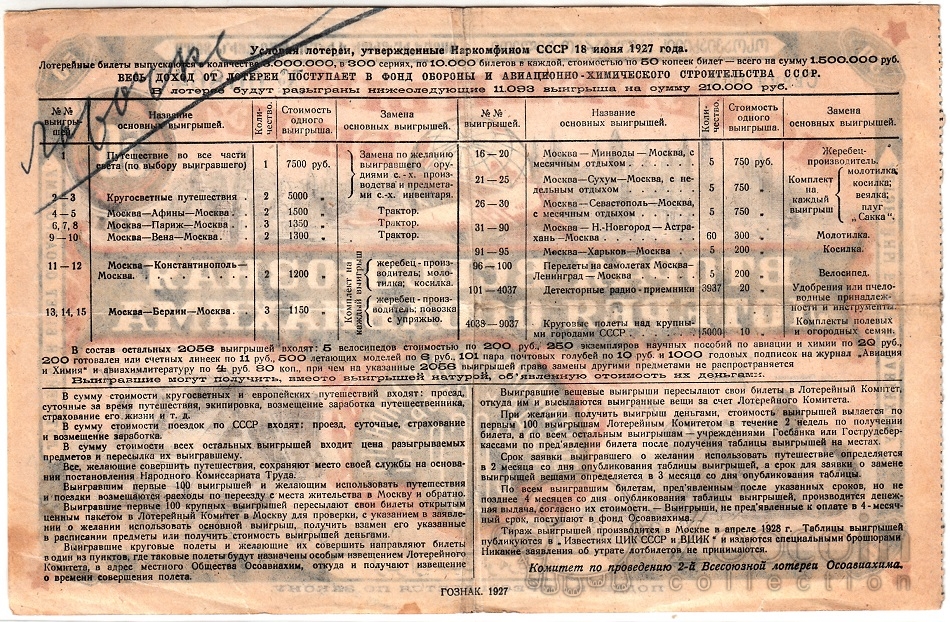 Условия лотереи, утвержденные Наркомфином СССР 18 июня 1927 года.
Лотерейные билеты выпускаются в количестве 3.000.000, в 300 сериях, по 10.000 билетов в каждой, стоимостью по 50 копеек билет — всего на сумму 1.500.000 руб.
ВЕСЬ ДОХОД ОТ ЛОТЕРЕИ ПОСТУПАЕТ В ФОНД ОБОРОНЫ И АВИАЦИОННО-ХИМИЧЕСКОГО СТРОИТЕЛЬСТВА СССР.
В лотерее будут разыграны нижеследующие 11.093 выигрыша на сумму 210.000 руб.
№№ выигрышей. Название основных выигрышей. Количество. Стоимость одного выигрыша. Замена основных выигрышей.
1 Путешествие во все части света (по выбору выигравшего) 1 7500 руб.
2—3 Кругосветные путешествия . 2 5000 „
Замена по желанию выигравшего орудиями с.-х. производства и предметами с.-х. инвентаря.
4—5 Москва—Афины—Москва . 2 1500 „ Трактор.
6, 7, 8 Москва—Париж—Москва 3 1350 „ Трактор.
9—10 Москва—Вена—Москва . 2 1300 „ Трактор.
11—12 Москва—Константинополь—Москва. 2 1200 „ жеребец-производитель; молотилка; косилка.
Комплект на каждый выигрыш
13, 14, 15 Москва—Берлин—Москва . 3 1150 „ жеребец-производитель; повозка с упряжью.
№№ выигрышей. Название основных выигрышей. Количество. Стоимость одного выигрыша. Замена основных выигрышей.
16—20 Москва—Минводы—Москва, с месячным отдыхом 5 750 руб. Жеребец-производитель.
21—25 Москва—Сухум—Москва, с недельным отдыхом 5 750 „
26—30 Москва—Севастополь—Москва, с месячным отдыхом 5 750 „
Комплект на каждый выигрыш молотилка; косилка; веялка; плуг „Сакка".
31—90 Москва—Н.-Новгород—Астрахань—Москва 60 300 „ Молотилка.
91—95 Москва—Харьков—Москва 5 200 „ Косилка.
96—100 Перелеты на самолетах Москва—Ленинград—Москва 5 200 „ Велосипед.
101—4037 Детекторные радио-приемники 3937 20 „ Удобрения или пчеловодные принадлежности и инструменты.
4038—9037 Круговые полеты над крупными городами СССР 5000 10 „ Комплекты полевых и огородных семян.
В состав остальных 2056 выигрышей входят: 5 велосипедов стоимостью по 200 руб., 250 экземпляров научных пособий по авиации и химии по 20 руб.,
200 готовален или счетных линеек по 11 руб., 500 летающих моделей по 6 руб., 101 пара почтовых голубей по 10 руб. и 1000 годовых подписок на журнал „Авиация
и Химия" и авиахимлитературу по 4 руб. 80 коп., при чем на указанные 2056 выигрышей право замены другими предметами не распространяется
Выигравшие могут получить, вместо выигрышей натурой, об'явленную стоимость их деньгами.
В сумму стоимости кругосветных и европейских путешествий входят: проезд,
суточные за время путешествия, экипировка, возмещение заработка путешественника,
страхование его жизни и т. д.
В сумму стоимости поездок по СССР входят: проезд, суточные, страхование
и возмещение заработка.
В сумму стоимости всех остальных выигрышей входит цена разыгрываемых
предметов и пересылка их выигравшему.
Все, желающие совершить путешествия, сохраняют место своей службы на основании постановления Народного Комиссариата Труда.
Выигравшим первые 100 выигрышей и желающим использовать путешествия
и поездки возмещаются расходы по переезду с места жительства в Москву и обратно.
Выигравшие первые 100 крупных выигрышей пересылают свои билеты открытым
ценным пакетом в Лотерейный Комитет в Москву для проверки, с указанием в заявлении о желании использовать основной выигрыш, получить взамен его указанные
в расписании предметы или получить стоимость выигрышей деньгами.
Выигравшие круговые полеты и желающие их совершить направляют билеты
в один из пунктов, где таковые полеты будут назначены особым извещением Лотерейного
Комитета, в адрес местного Общества Осоавиахим, откуда и получают извещение
о времени совершения полета.
Выигравшие вещевые выигрыши пересылают свои билеты в Лотерейный Комитет,
откуда им и высылаются выигранные вещи за счет Лотерейного Комитета.
При желании получить выигрыш деньгами, стоимость выигрышей выдается по
первым 100 выигрышам Лотерейным Комитетом в течение 2 недель по получении
билета, а по всем остальным выигрышам — учреждениями Госбанка или Гострудсберкассами по пред'явлении билета после получения таблицы выигрышей на местах.
Срок заявки выигравшего о желании использовать путешествие определяется
в 2 месяца со дня опубликования таблицы выигрышей, а срок для заявки о замене
выигрышей вещами определяется в 3 месяца со дня опубликования таблицы.
По всем выигравшим билетам, пред'явленным после указанных сроков, но не
позднее 4 месяцев со дня опубликования таблицы выигрышей, производится денежная выдача, согласно их стоимости. — Выигрыши, не пред'явленные к оплате в 4-месячный срок, поступают в фонд Осоавиахима.
Тираж выигрышей производится в Москве в апреле 1928 г. Таблицы выигрышей
публикуются в „Известиях ЦИК СССР и ВЦИК" и издаются специальными брошюрами
Никакие заявления об утрате лотбилетов не принимаются.
Комитет по проведению 2-й Всесоюзной лотереи Осоавиахима.
collection
ГОЗНАК. 1927